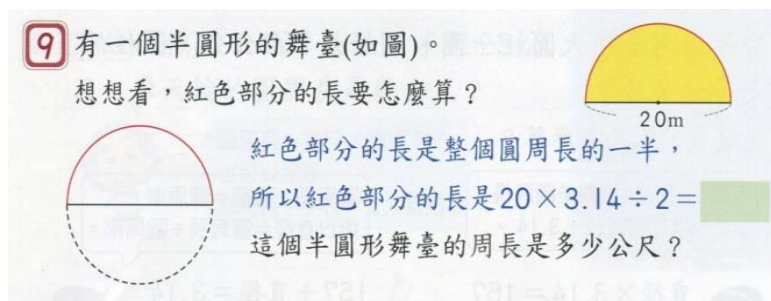 9 有一個半圓形的舞臺(如圖)。
想想看，紅色部分的長要怎麼算？
20m
紅色部分的長是整個圓周長的一半，
所以紅色部分的長是20×3.14÷2=
這個半圓形舞臺的周長是多少公尺？